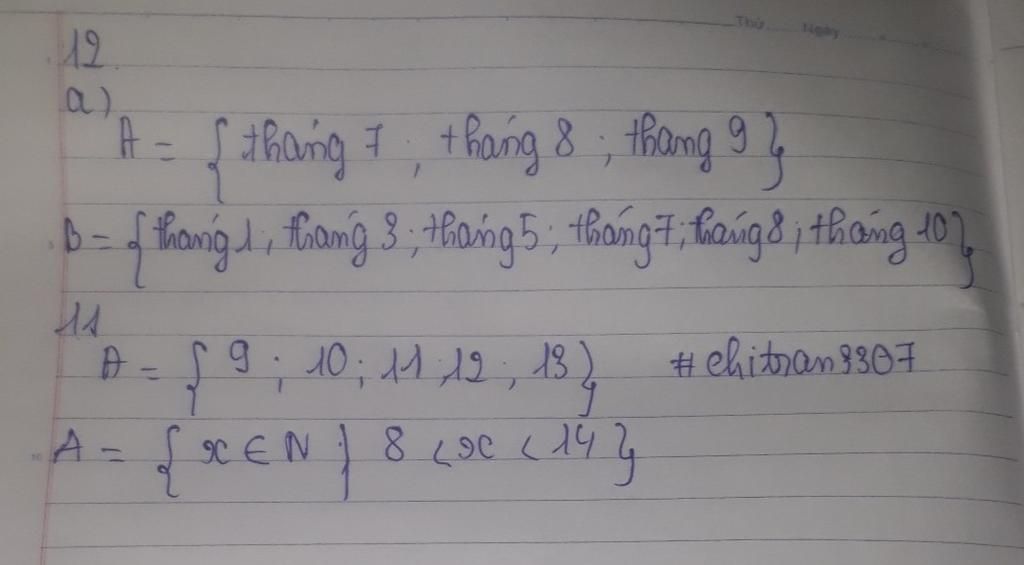 Thứ Ngày
12
a)
A = { tháng 7 ; tháng 8 ; thang 9 }
B = { tháng 1 ; tháng 3 ; tháng 5 ; tháng 7 ; tháng 8 ; tháng 10 }
11
A = { 9 ; 10 ; 11 ; 12 ; 13 } #chitran3307
A = { x ∈ N } 8 < x < 14 }